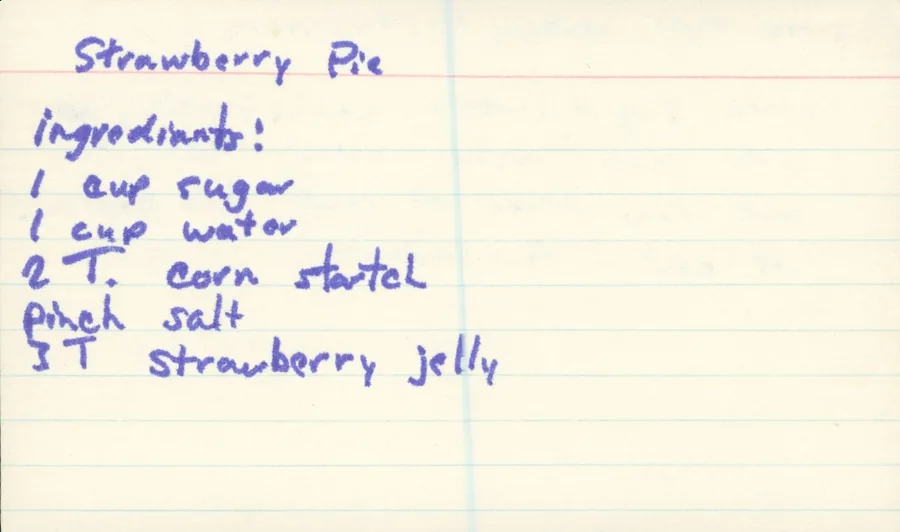 Strawberry Pie
ingrediants!
1 cup sugar
1 cup water
2 T. corn startch
pinch salt
3 T strawberry jelly